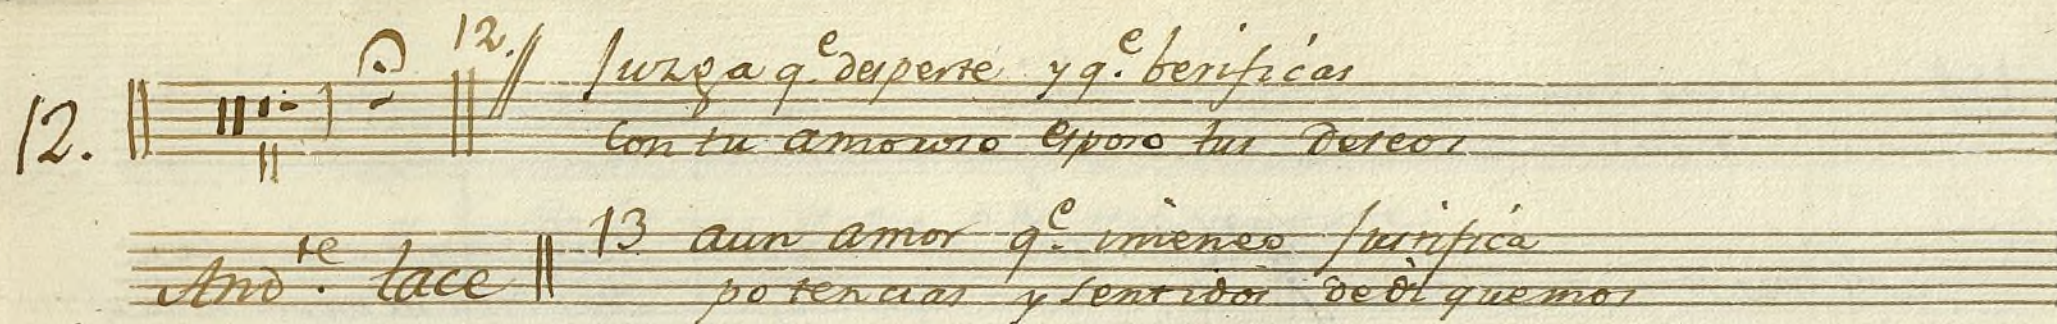 12. 12. Juzga q.e desperte y q.e berificas
Con tu amoroso esposo tus deseos
And.te tace 13 aun amor q.e imeneo purifica
potencias y sentidos dediquemos